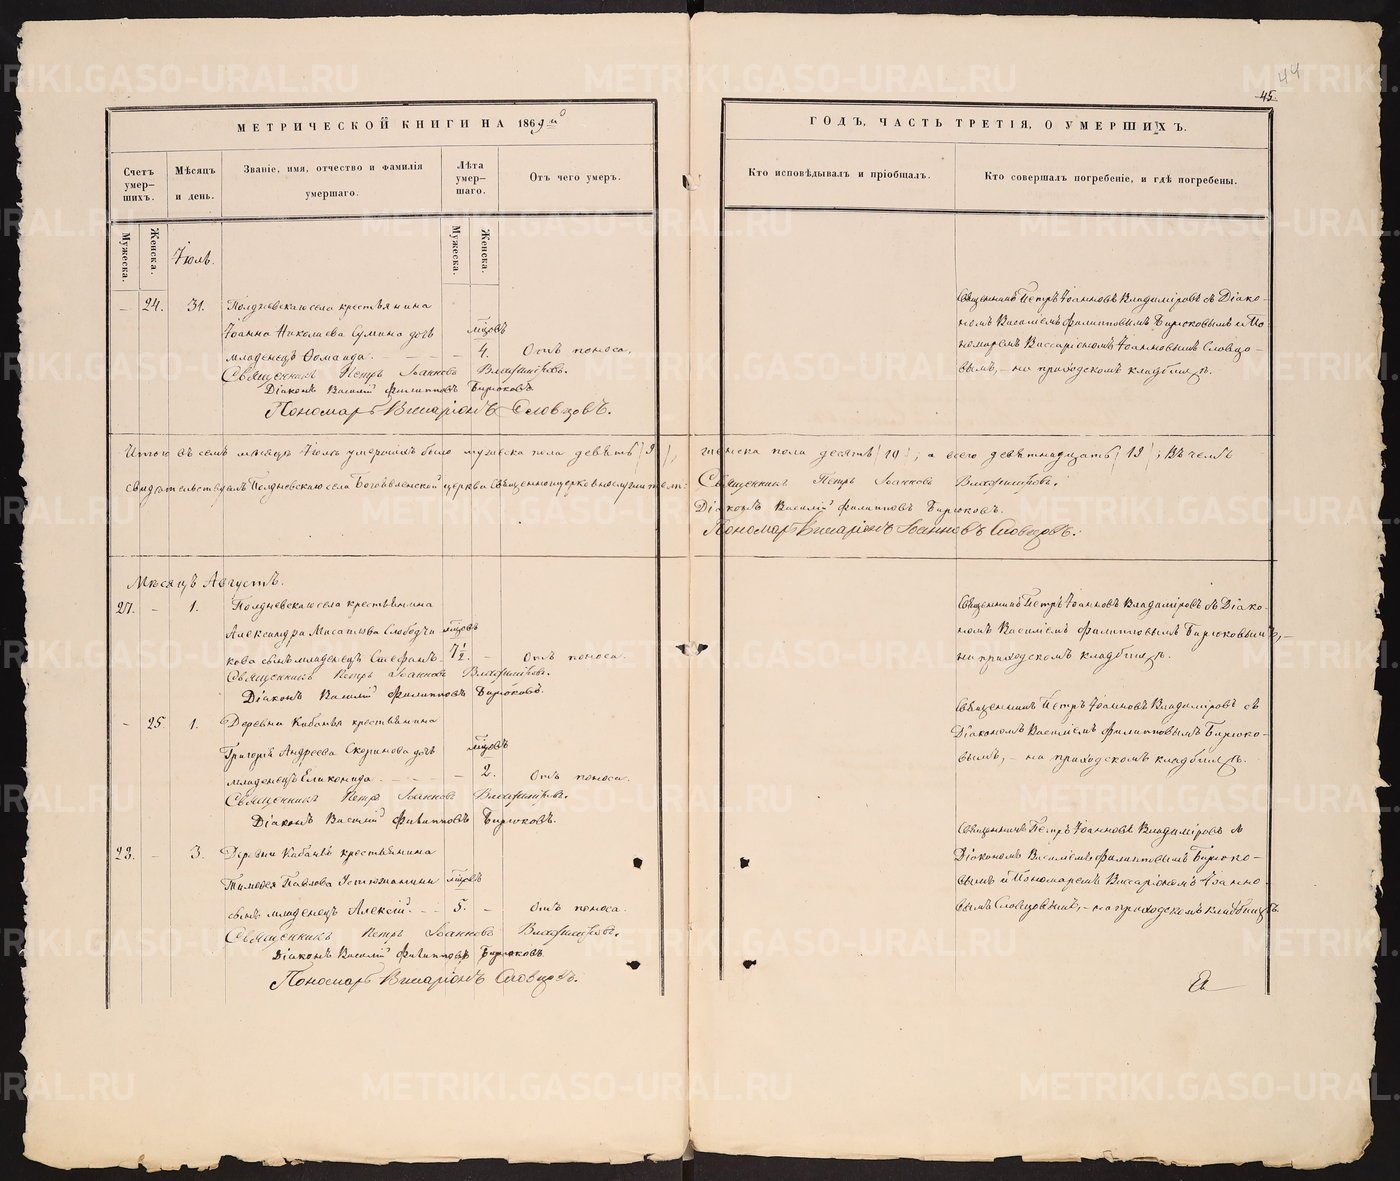 44
45.
МЕТРИЧЕСКОЙ КНИГИ НА 1869й
ГОДЪ, ЧАСТЬ ТРЕТІЯ, О УМЕРШИХЪ.
Счетъ умер- шихъ.
Мѣсяцъ и день.
Званіе, имя, отчество и фамилія умершаго.
Лѣта умер- шаго.
Отъ чего умеръ.
Кто исповѣдывалъ и пріобщалъ.
Кто совершалъ погребеніе, и гдѣ погребены.
Мужеска.
Женска.
Мужеска.
Женска.
Іюль.
— 24. 31. Полдневскаго села крестьянина
Іоанна Николаева Сумина дочь мѣсцовъ
младенецъ Домнида. — — — 4. Отъ поноса.
Священникъ Петръ Іоанновъ Владиміровъ.
Діаконъ Василій Филипповъ Бирюковъ
Пономарь Виссаріонъ Словцовъ.
Священникъ Петръ Іоанновъ Владиміровъ съ Діако-
номъ Василіемъ Филипповымъ Бирюковымъ и По-
номаремъ Виссаріономъ Іоанновымъ Словцо-
вымъ, – на приходскомъ кладбищѣ.
Итого въ семъ мѣсяцѣ Іюлѣ умершихъ было мужеска пола девять /9/,
женска пола десять /10/, а всего девятнадцать /19/; Въ чемъ
свидѣтельствуемъ Полдневскаго села Богоявленской церкви Священноцерковнослужители:
Священникъ Петръ Іоанновъ Владиміровъ.
Діаконъ Василій Филипповъ Бирюковъ.
Пономарь Виссаріонъ Іоанновъ Словцовъ.
Мѣсяцъ Августъ.
27. — 1. Полдневскаго села крестьянина
Александра Слободчи- мѣсцовъ
кова сынъ младенецъ Стефанъ. — 7½. — Отъ поноса.
Священникъ Петръ Іоанновъ Владиміровъ.
Діаконъ Василій Филипповъ Бирюковъ.
Священникъ Петръ Іоанновъ Владиміровъ съ Діако-
номъ Василіемъ Филипповымъ Бирюковымъ, –
на приходскомъ кладбищѣ.
— 25 1. Деревни Кабанья крестьянина
Григорія Андреева Скорынова дочь мѣсцовъ
младенецъ Еликонида. — — — 2. Отъ поноса.
Священникъ Петръ Іоанновъ Владиміровъ.
Діаконъ Василій Филипповъ Бирюковъ.
Священникъ Петръ Іоанновъ Владиміровъ съ
Діакономъ Василіемъ Филипповымъ Бирюко-
вымъ, – на приходскомъ кладбищѣ.
23. — 3. Деревни Кабанья крестьянина
Тимофея Павлова Устюжанина мѣсцовъ
сынъ младенецъ Алексій. — — 5. — Отъ поноса.
Священникъ Петръ Іоанновъ Владиміровъ.
Діаконъ Василій Филипповъ Бирюковъ
Пономарь Виссаріонъ Словцовъ.
Священникъ Петръ Іоанновъ Владиміровъ съ
Діакономъ Василіемъ Филипповымъ Бирюко-
вымъ и Пономаремъ Виссаріономъ Іоанно-
вымъ Словцовымъ, – на приходскомъ кладбищѣ.
METRIKI.GASO-URAL.RU